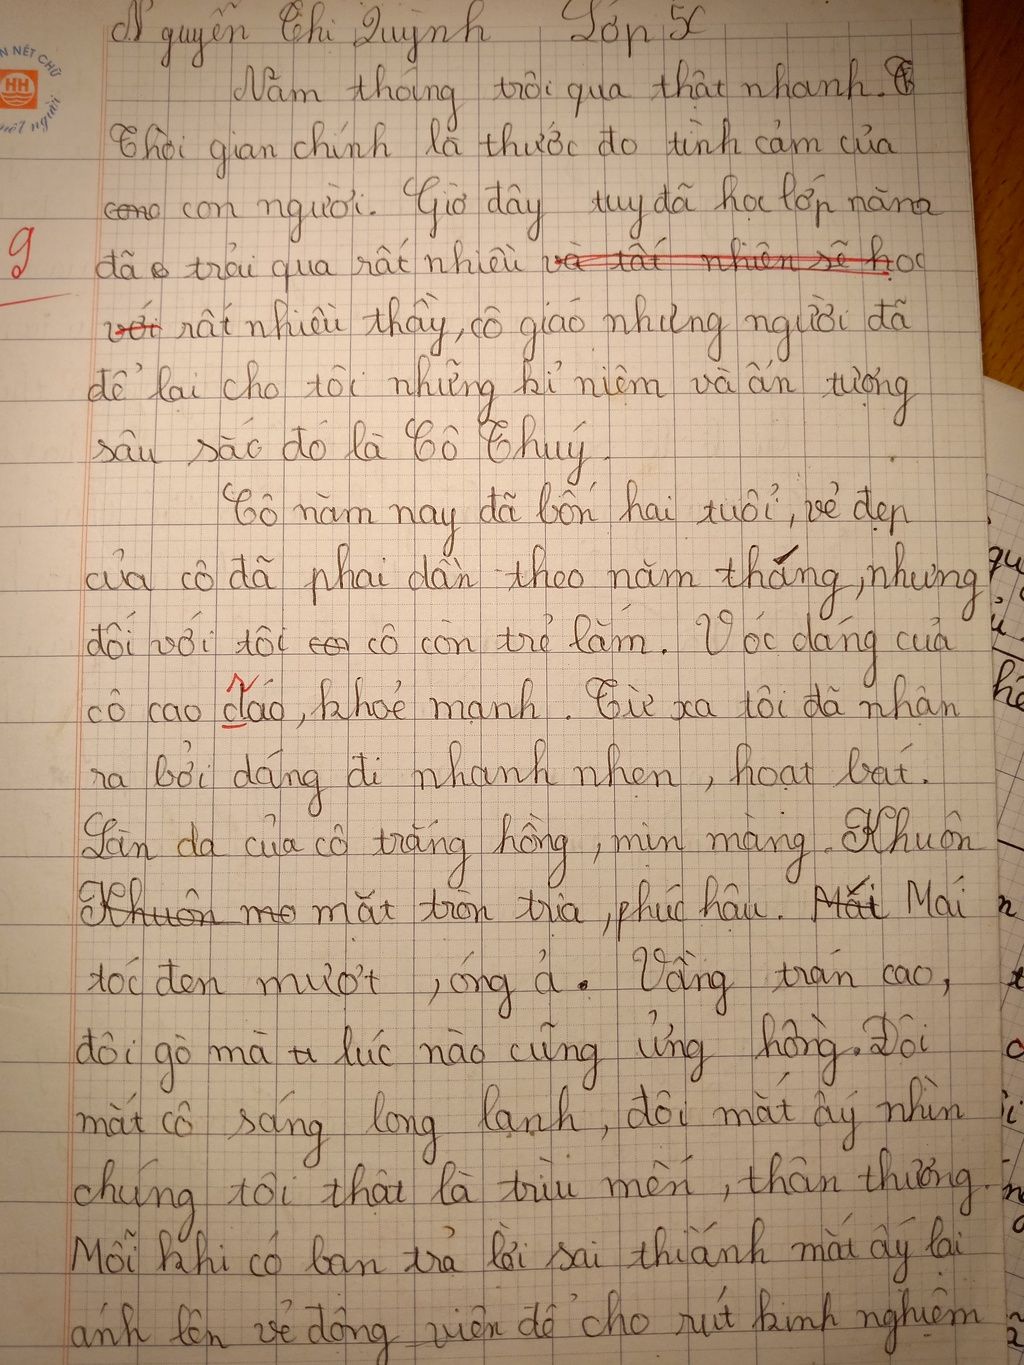 Nguyễn Thị Quỳnh Lớp 5C
ÈN NẾT CHỮ
HH
nết người
Năm tháng trôi qua thật nhanh. T
Thời gian chính là thước đo tình cảm của
cong con người. Giờ đây tuy đã học lớp năm
9
đã trải qua rất nhiều và tất nhiên sẽ học
với rất nhiều thầy, cô giáo nhưng người đã
để lại cho tôi những kỉ niệm và ấn tượng
sâu sắc đó là Cô Thuý.
Cô năm nay đã bốn hai tuổi, vẻ đẹp
của cô đã phai dần theo năm tháng, nhưng
đối với tôi cô còn trẻ lắm. Vóc dáng của
cô cao đáo, khoẻ mạnh. Từ xa tôi đã nhận
ra bởi dáng đi nhanh nhẹn, hoạt bát.
Làn da của cô trắng hồng, mịn màng. Khuôn
Khuôn mo mặt tròn trịa, phúc hậu. Mái Mái
tóc đen mượt, óng ả. Vầng trán cao,
đôi gò má lúc nào cũng ửng hồng. Đôi
mắt cô sáng long lanh, đôi mắt ấy nhìn
chúng tôi thật là trìu mến, thân thương.
Mỗi khi có bạn trả lời sai thì ánh mắt ấy lại
ánh lên vẻ động viên để cho rút kinh nghiệm